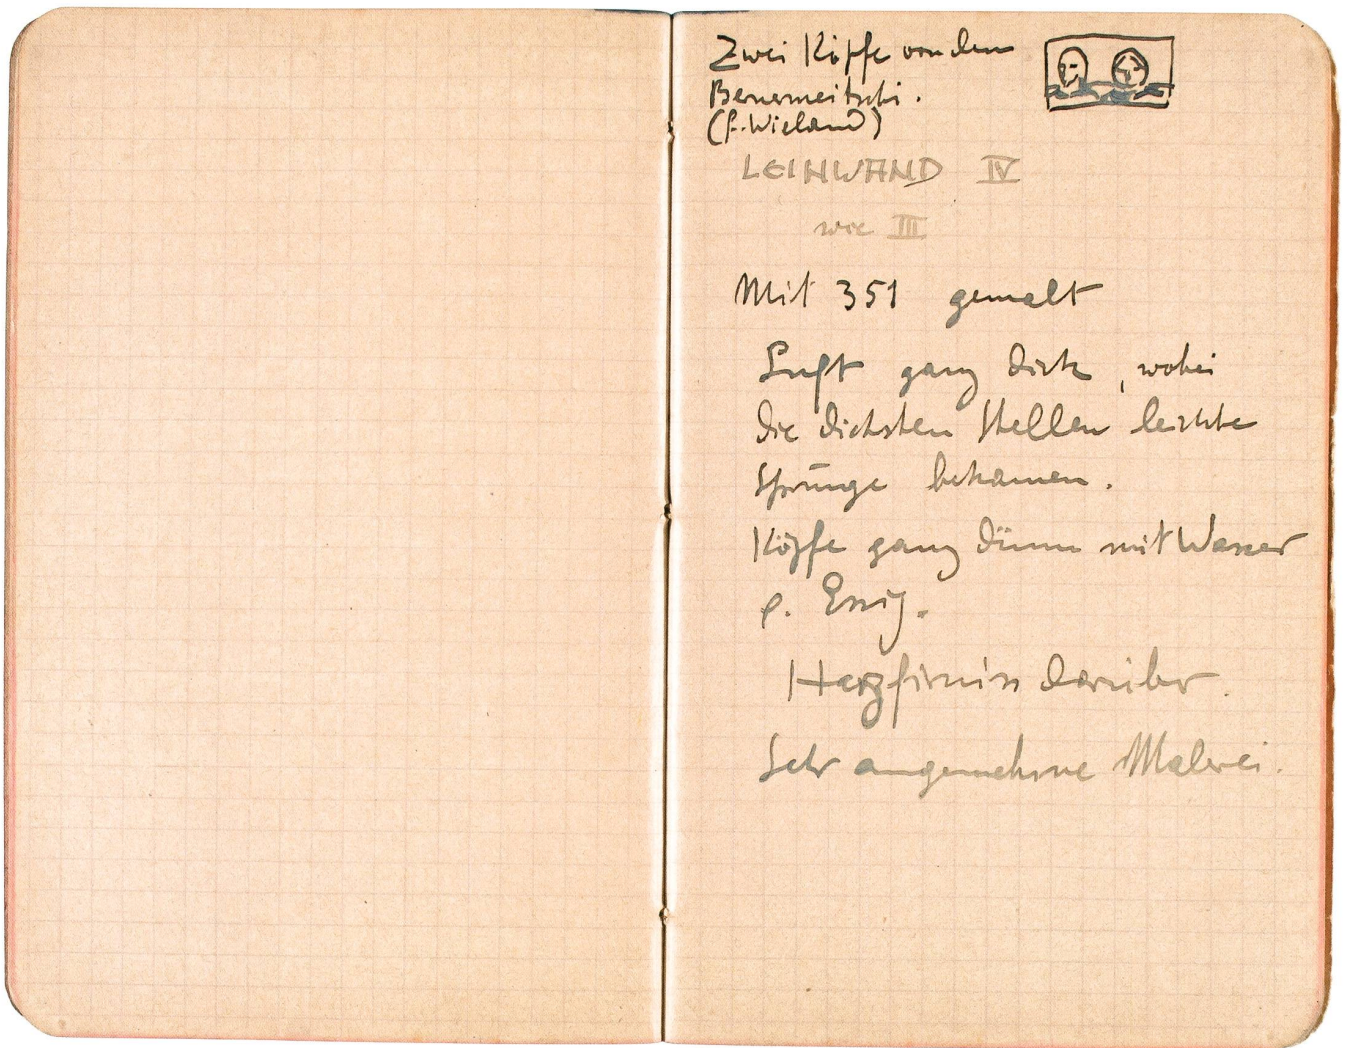 Zwei Köpfe von dem
Bernermeitschi.
(f. Wieland)
LEINWAND IV
wie III
Mit 351 gemalt
Luft ganz dick, wobei
die dicksten Stellen leichte
Sprünge bekamen.
Köpfe ganz dünn mit Wasser
Essig.
Harzfirniss darüber.
Sehr angenehme Malerei.